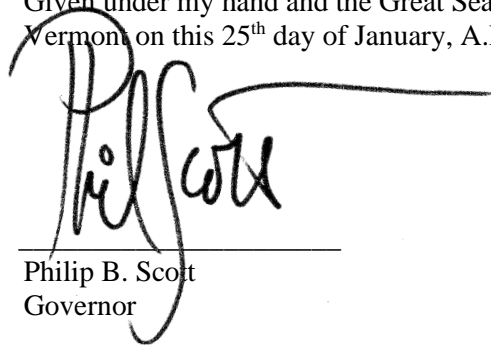 Given under my hand and the Great Sea
Vermont on this 25th day of January, A.
Phil Scott
Philip B. Scott
Governor